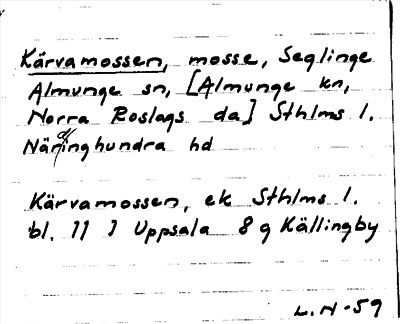 Kärvamossen, mosse, Seglinge
Almunge sn, [Almunge kn,
Norra Roslags da] Sthlms l.
Närdinghundra hd
Kärvamossen, ek Sthlms l.
bl. 11 J Uppsala 8 g Källingby
L.N-59